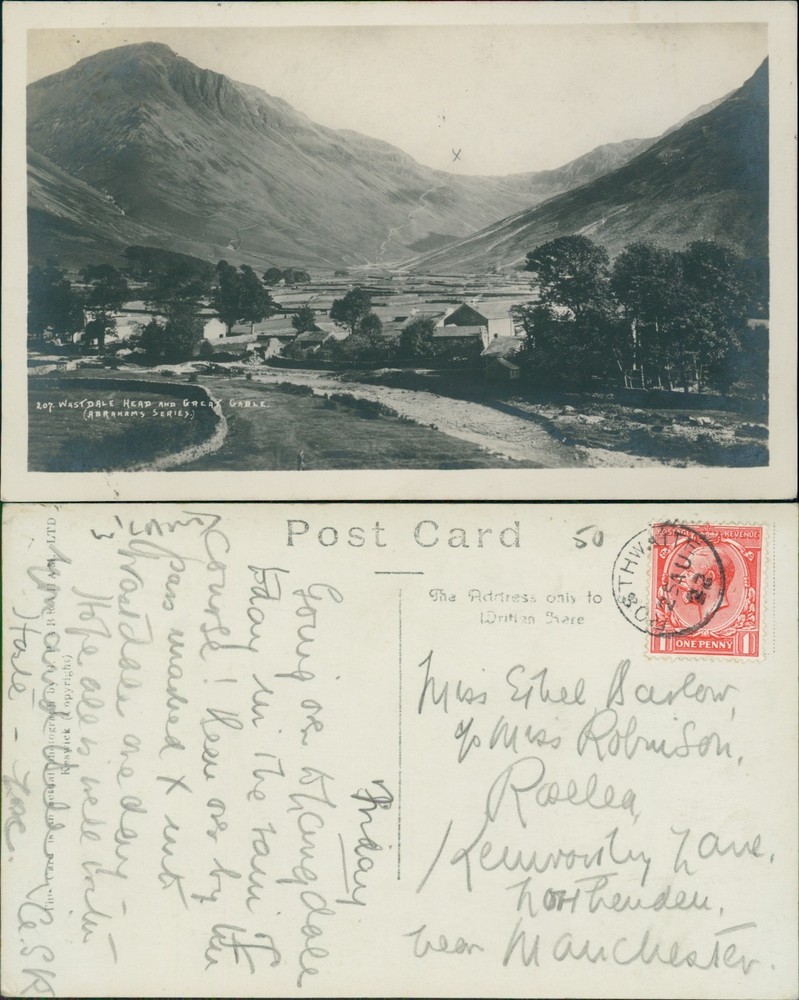 x
207. WASTDALE HEAD AND GREAT GABLE.
(ABRAHAMS SERIES.)
Post Card
50
The Address only to
be Written Here
ROSTHWAITE
AU
22
POSTAGE REVENUE
1 ONE PENNY 1
Miss Ethel Barlow,
c/o Miss Robinson,
Kenworthy Lane,
Northenden,
near Manchester.
Friday
Going over to Langdale
today in the rain of
course! Been over by the
pass marked X into
Wastdale one day
Hope all is well with
Haste - Love.
Keswick (Copyright)